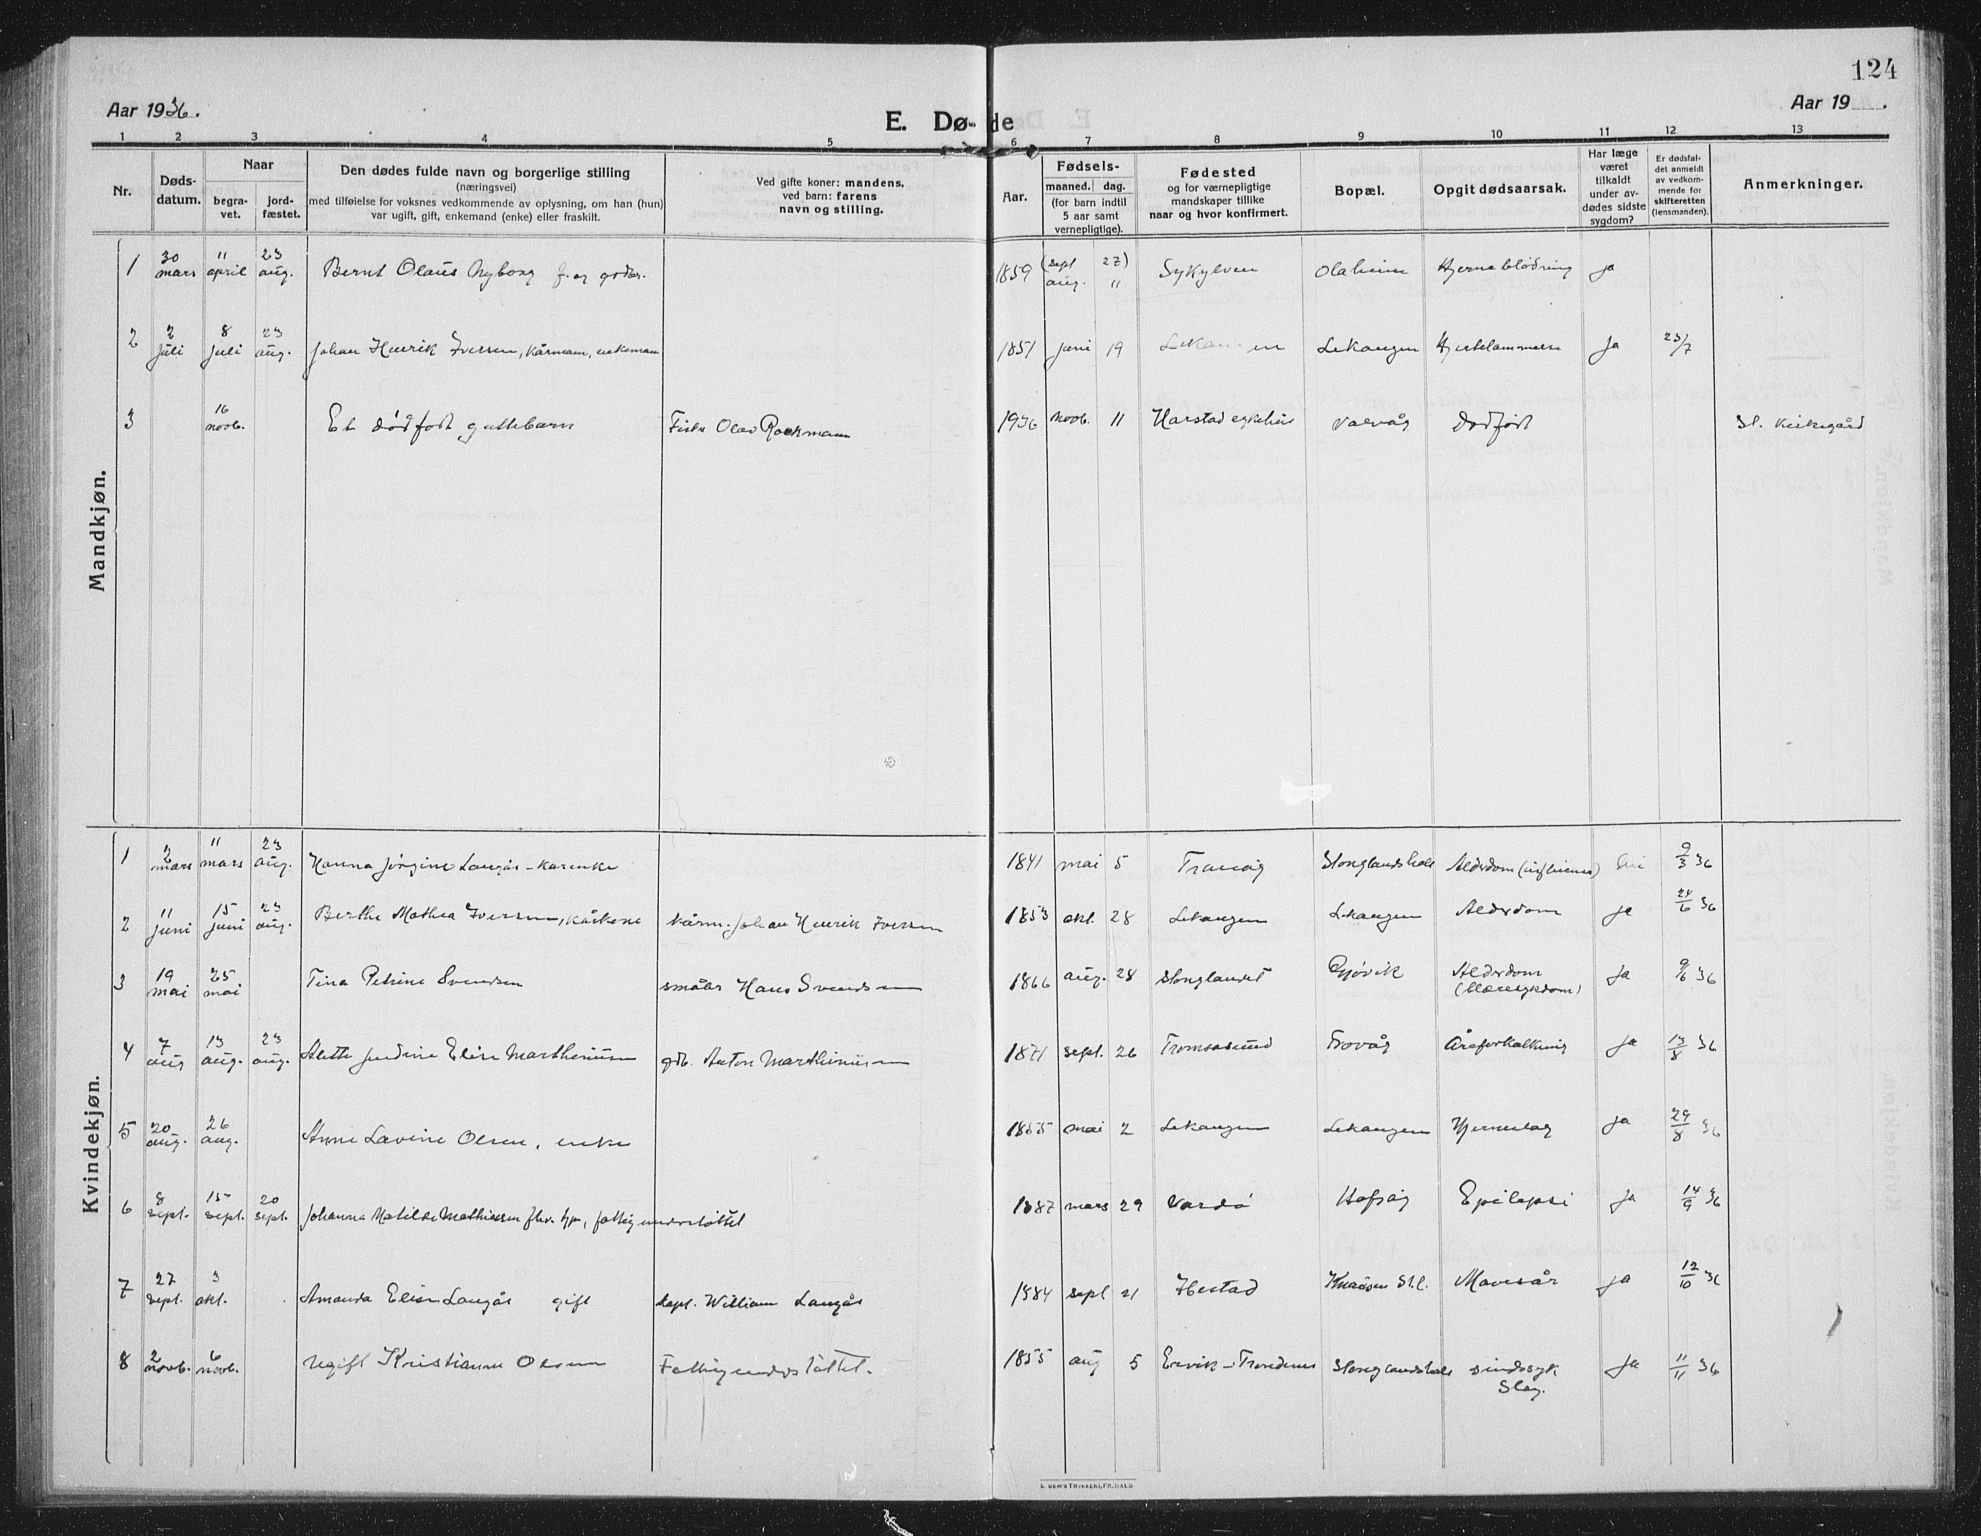 124
Aar 1936.
Aar 19 .
E. Dø- de
1 2 3 4 5 6 7 8 9 10 11 12 13
Nr.
Døds-datum.
Naar
begra-vet.
jord-fæstet.
Den dødes fulde navn og borgerlige stilling
(næringsvei)
med tilføielse for voksnes vedkommende av oplysning, om han (hun)
var ugift, gift, enkemand (enke) eller fraskilt.
Ved gifte koner: mandens,
ved barn: farens
navn og stilling.
Aar.
Fødsels-
maaned. dag.
(for barn indtil
5 aar samt
vernepligtige).
Fødested
og for værnepligtige
mandskaper tillike
naar og hvor konfirmert.
Bopæl.
Opgit dødsaarsak.
Har læge
været
tilkaldt
under av-
dødes sidste
sygdom?
Er dødsfal-
det anmeldt
av vedkom-
mende for
skifteretten
(lensmanden).
Anmerkninger.
Mandkjøn.
1 30 mars 11 april 23 aug. Bernt Olaus Nyborg f. og gdbr. 1859 (sept 27) aug. 11 Sykylven Olaheim Hjerneblødning ja
2 2 juli 8 juli 23 aug. Johan Henrik Iversen, kårmann, enkemann 1851 juni 19 Lekangen Lekangen Hjertelammelse Ja 23/7
3 16 novb. Et dødfødt guttebarn Fisker Olav Rockmann 1936 novb. 11 Harstad sykehus Valvåg Dødfødt Sl. kirkegård
Kvindekjøn.
1 2 mars 11 mars 23 aug. Hanna Jørgine Langås - kårenke 1841 mai 5 Tranøy Stonglandshals Alderdom (influensa) 9/3 36
2 11 juni 15 juni 23 aug. Berthe Mathea Iversen, kårkone kårm. Johan Henrik Iversen 1853 okt. 28 Lekangen Lekangen Alderdom ja 24/6 36
3 19 mai 25 mai Tina Petrine Svendsen småbr Hans Svendsen 1866 aug. 28 Stonglandet Gjøvik Alderdom (blæresykdom) ja 9/6 36
4 7 aug 13 aug. 23 aug. Alette Jendine Elise Marthinusen gdb. Anton Marthinusen 1871 sept. 26 Tromsøsund Trovåg Åreforkalkning ja 13/8 36
5 20 aug. 26 aug. Anne Lavine Olsen, enke 1855 mai 2 Lekangen Lekangen Hjerneslag ja 29/8 36
6 8 sept. 15 sept. 20 sept. Johanna Matilde Mathiesen fhv. hp, fattigunderstøttet 1887 mars 29 Vardø Hofsøy Epilepsi ja 14/9 36
7 27 sept. 3 okt. Amanda Elise Langås gift kapt. William Langås 1884 sept 21 Ibestad Knausen St.l. Mavesår ja 12/10 36
8 2 novb. 6 novb. ugift Kristianne Olsen Fattigunderstøttet. 1855 aug 5 Ervik - Trondenes Stonglandshals sindssyk Slag. Ja 11/11 36